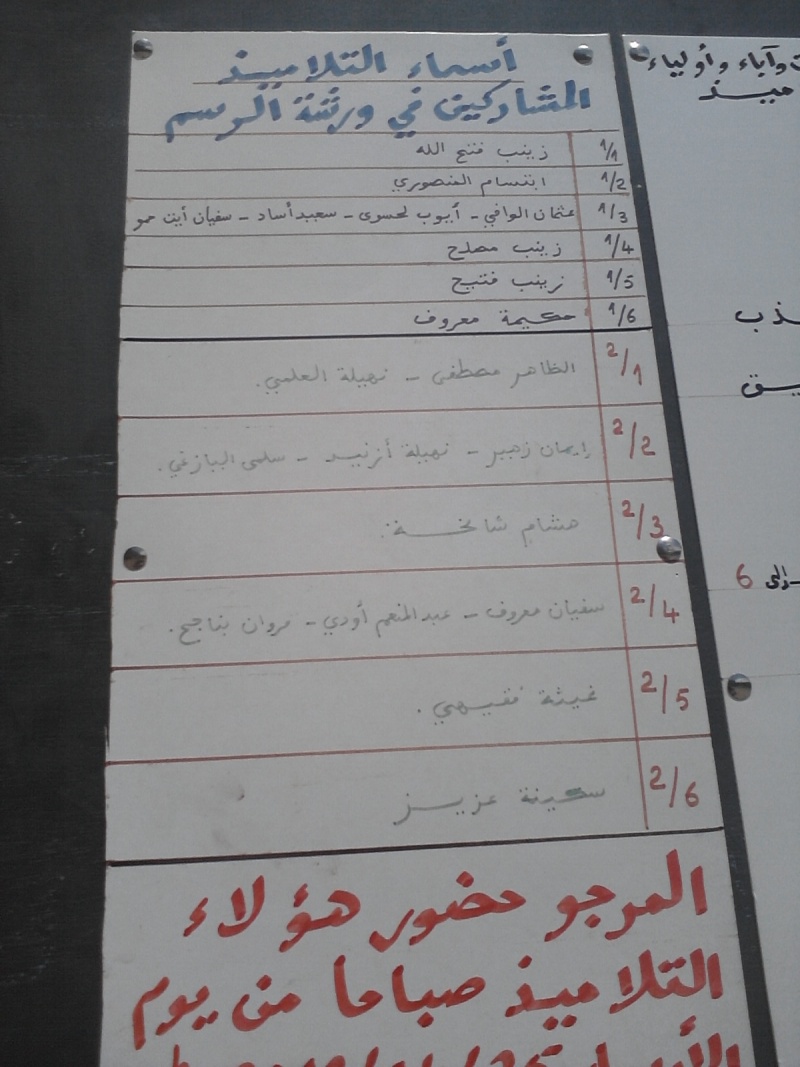 أسماء التلاميذ
المشاركين في ورشة الرسم
1/1 زينب فتح الله
1/2 ابتسام المنصوري
1/3 عثمان الوافي - أيوب لحسوى - سعيد أساد - سفيان أيت حمو
1/4 زينب مصلح
1/5 زينب فتيح
1/6 حكيمة معروف
2/1 الظاهر مصطفى - نهيلة العلمي.
2/2 إيمان زهير - نهيلة أزنيد - سلمى اليازغي.
2/3 هشام شالخة.
2/4 سفيان معروف - عبد المنعم أودي - مروان بناجح.
2/5 غيثة فقيهي.
2/6 سكينة عزيز
المرجو حضور هؤلاء
التلاميذ صباحا من يوم
وآباء وأولياء
إلى 6